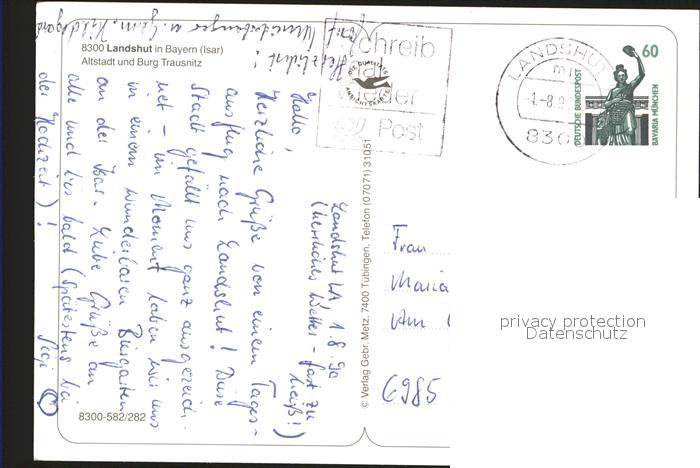 8300 Landshut in Bayern (Isar)
Altstadt und Burg Trausnitz
Landshut LA 1.8.90
(herrliches Wetter - fast zu
heiß!)
Hallo,
Herzliche Grüße von einem Tages-
ausflug nach Landshut! Diese
Stadt gefällt uns ganz ausgezeich-
net - im Moment laben wir uns
in einem wunderbaren Biergarten
an der Isar. Liebe Grüße an
alle und bis bald (spätestens bei
der Hochzeit)!
Sigi
Herzlichst!
8300-582/282
© Verlag Gebr. Metz, 7400 Tübingen, Telefon (07071) 31051
Schreib
mal
wieder
Post
LANDSHUT
mi
-1.-8.9
830
60
DEUTSCHE BUNDESPOST
BAVARIA MÜNCHEN
Frau
Maria
Am
6985
privacy protection
Datenschutz